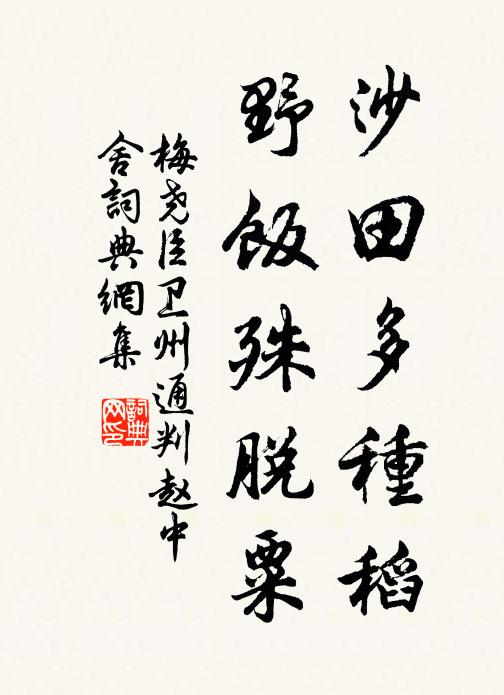 沙田多種稻
野飯殊脱粟
梅尧臣卫州通判赵中
舍詞典網集
詞典网印